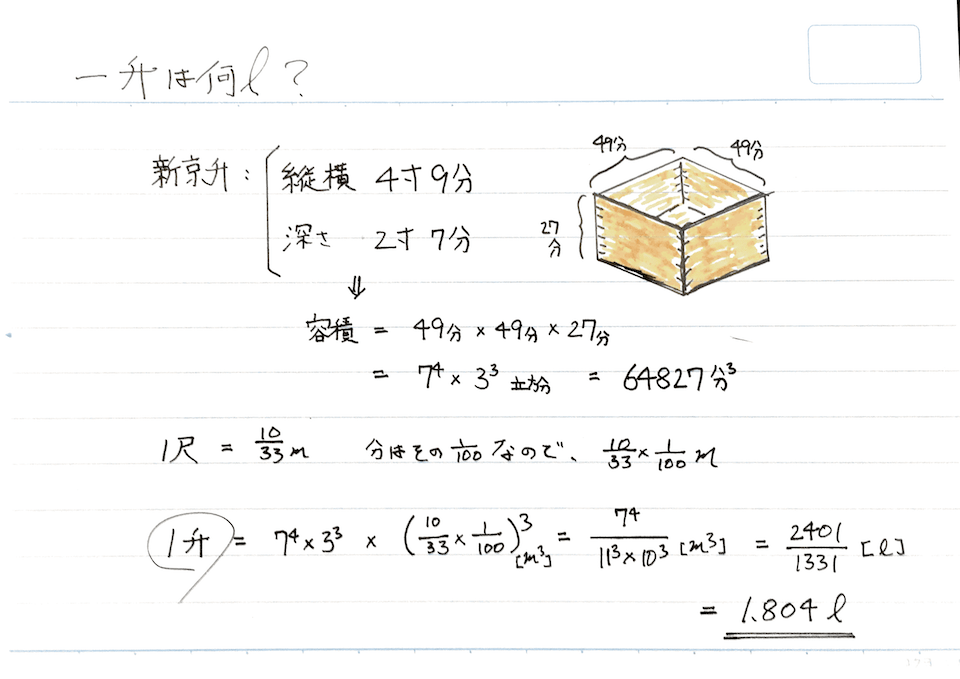 一升は何ℓ?
49分 49分
新京升: 縦横 4寸9分
27分
深さ 2寸7分
⇓
容積 = 49分 × 49分 × 27分
= 7⁴ × 3³ 立方分 = 64827分³
1尺 = 10/33 m 分はその 1/100 なので、 10/33 × 1/100 m
1升 = 7⁴ × 3³ × (10/33 × 1/100)³ [m³] = 7⁴/(11³ × 10³) [m³] = 2401/1331 [ℓ]
= 1.804 ℓ